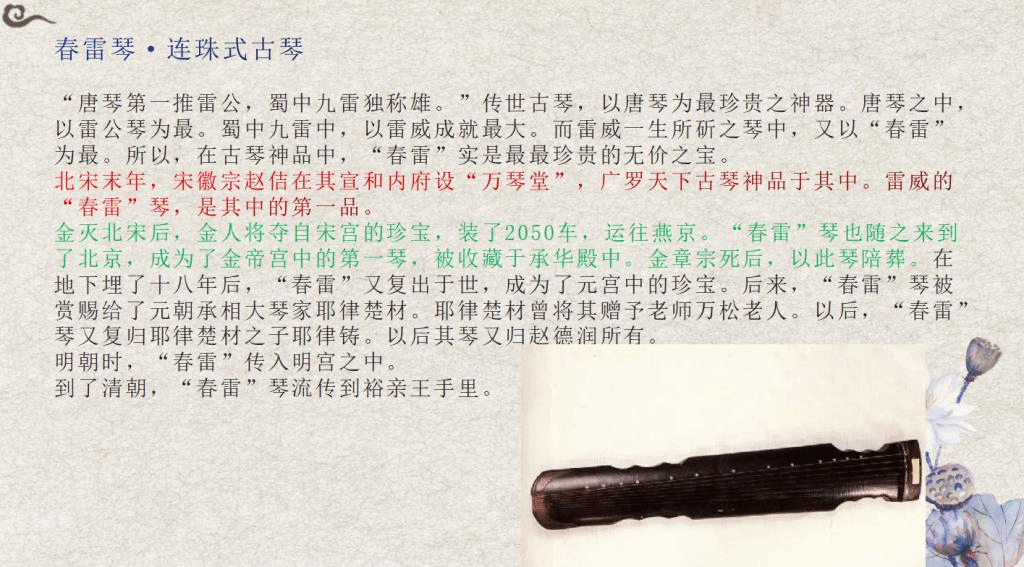 春雷琴·连珠式古琴
“唐琴第一推雷公，蜀中九雷独称雄。”传世古琴，以唐琴为最珍贵之神器。唐琴之中，
以雷公琴为最。蜀中九雷中，以雷威成就最大。而雷威一生所斫之琴中，又以“春雷”
为最。所以，在古琴神品中，“春雷”实是最最珍贵的无价之宝。
北宋末年，宋徽宗赵佶在其宣和内府设“万琴堂”，广罗天下古琴神品于其中。雷威的
“春雷”琴，是其中的第一品。
金灭北宋后，金人将夺自宋宫的珍宝，装了2050车，运往燕京。“春雷”琴也随之来到
了北京，成为了金帝宫中的第一琴，被收藏于承华殿中。金章宗死后，以此琴陪葬。在
地下埋了十八年后，“春雷”又复出于世，成为了元宫中的珍宝。后来，“春雷”琴被
赏赐给了元朝承相大琴家耶律楚材。耶律楚材曾将其赠予老师万松老人。以后，“春雷”
琴又复归耶律楚材之子耶律铸。以后其琴又归赵德润所有。
明朝时，“春雷”传入明宫之中。
到了清朝，“春雷”琴流传到裕亲王手里。